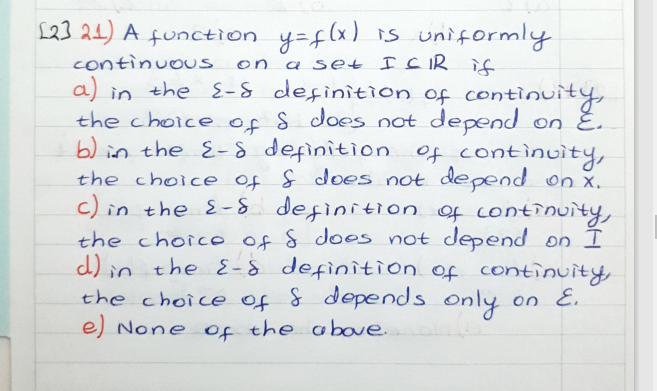 [2] 21) A function y=f(x) is uniformly
continuous on a set I ⊂ IR if
a) in the ε-δ definition of continuity,
the choice of δ does not depend on ε.
b) in the ε-δ definition of continuity,
the choice of δ does not depend on x.
c) in the ε-δ definition of continuity,
the choice of δ does not depend on I
d) in the ε-δ definition of continuity,
the choice of δ depends only on ε.
e) None of the above.